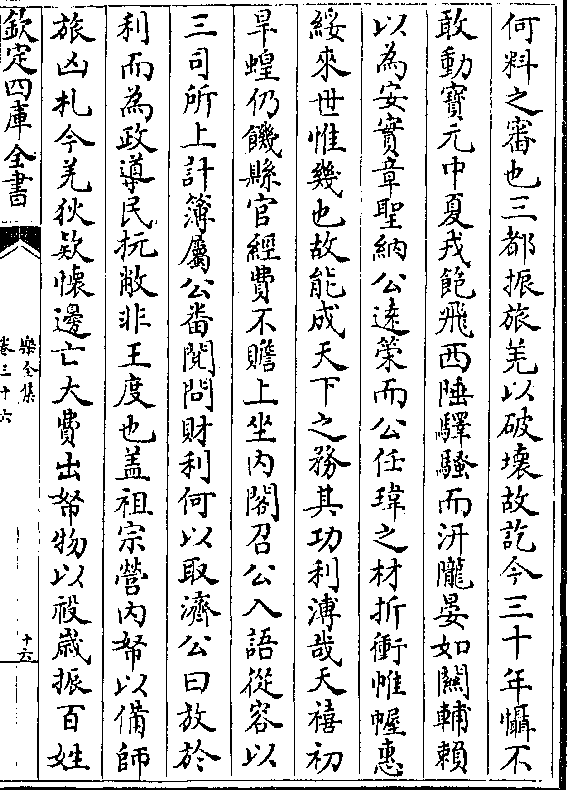 何料之審也三都振旅羌以破壊故訖今三十年懾不
敢動寳元中夏戎飽飛西陲驛騷而汧隴晏如關輔賴
以為安實章聖納公逺策而公任瑋之材折衝帷幄惠
綏來世惟幾也故能成天下之務其功利溥哉天禧初
旱蝗仍饑縣官經費不贍上坐内閣召公入語從容以
三司所上計簿屬公畨閱問財利何以取濟公曰放於
利而為政導民抏敝非王度也盖祖宗營内帑以備師
旅凶札今羌狄欵懐邊亡大費出帑物以祲嵗振百姓
欽定四庫全書
樂全集
卷三十六
十六